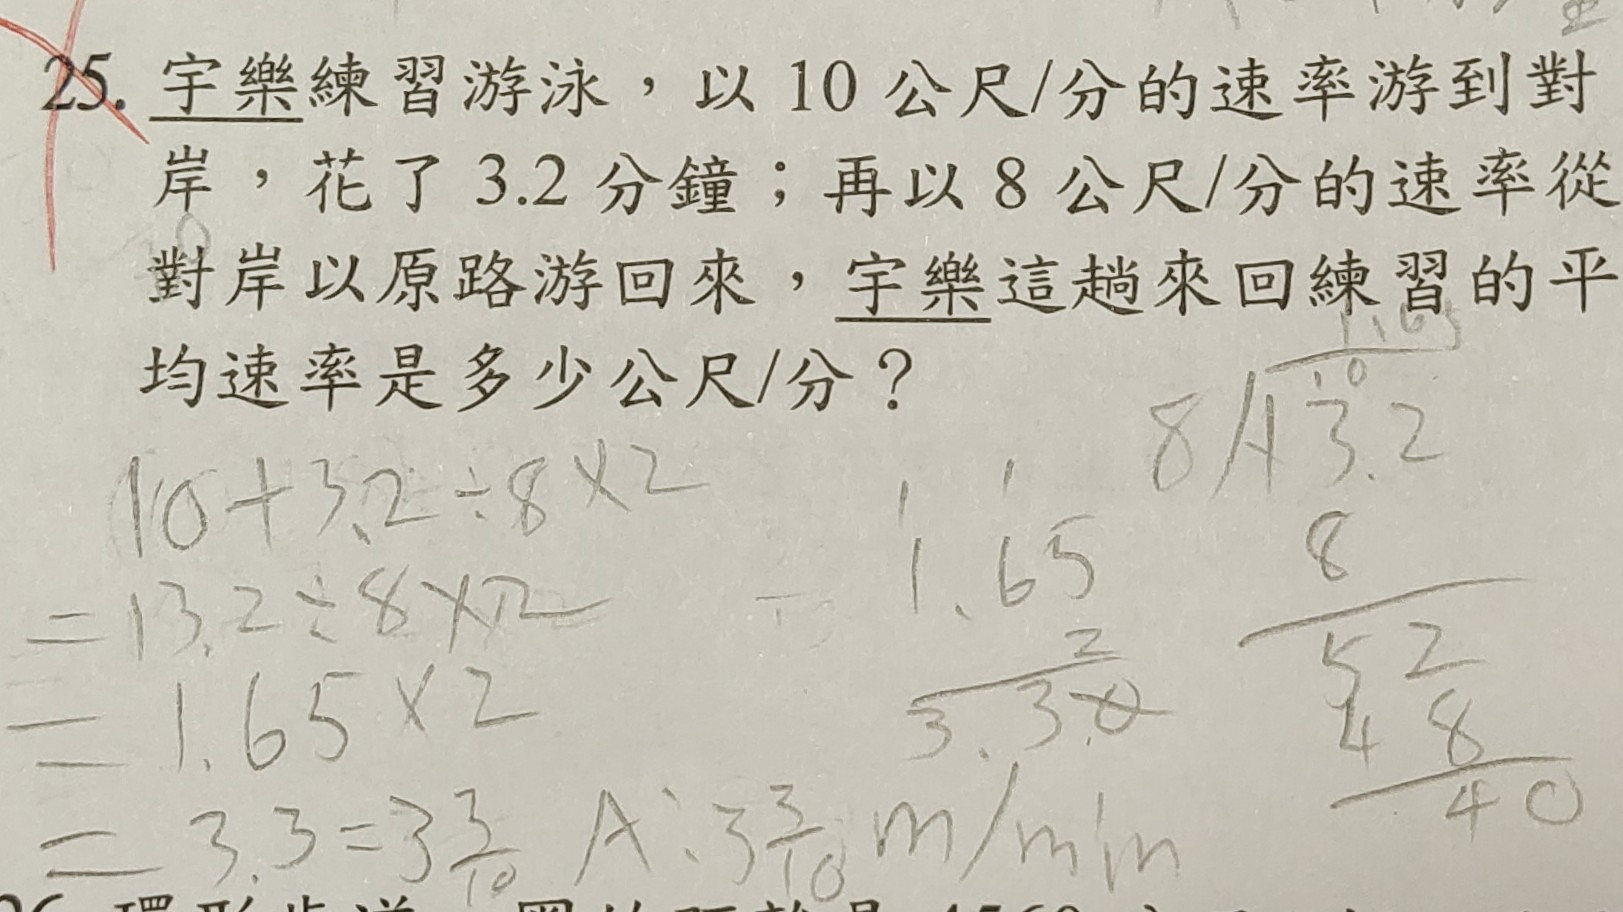 25. 宇樂練習游泳，以 10 公尺/分的速率游到對
岸，花了 3.2 分鐘；再以 8 公尺/分的速率從
對岸以原路游回來，宇樂這趟來回練習的平
均速率是多少公尺/分？
10+3.2÷8×2
=13.2÷8×2
=1.65×2
=3.3=3 3/10 A:3 3/10 m/min
1 1
1.65
2
3.30
1.65
8 13.2
8
52
48
40